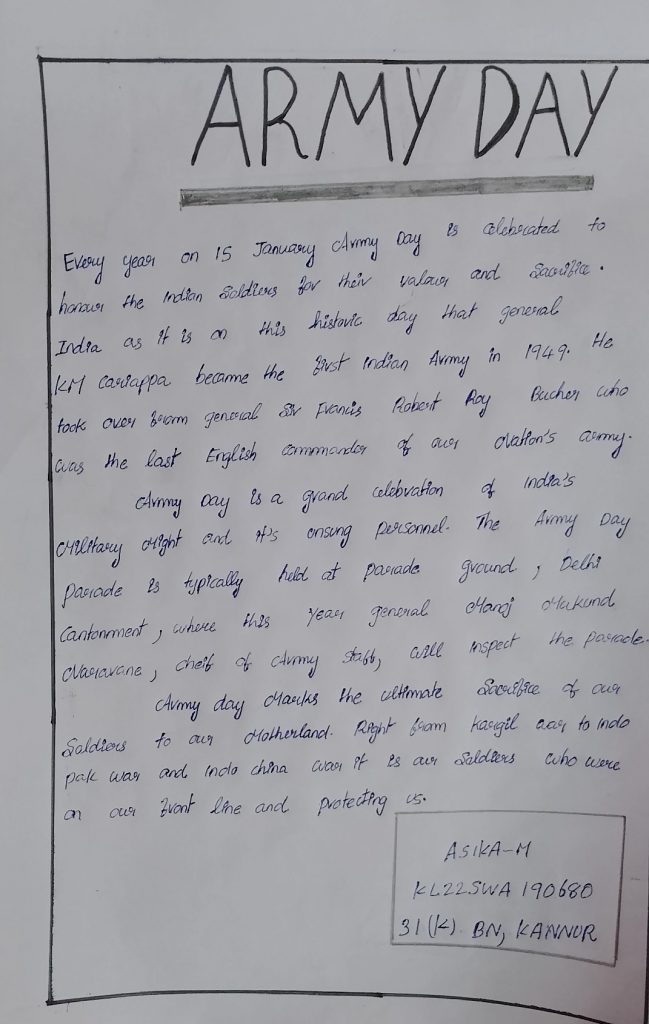 ARMY DAY
Every year on 15 January Army Day is celebrated to
honour the Indian Soldiers for their valour and Sacrifice.
India as it is on this historic day that general
KM Cariappa became the first Indian Army in 1949. He
took over from general Sir Francis Robert Roy Bucher who
was the last English commander of our Nation's army.
Army Day is a grand celebration of India's
Military Might and it's onsung personnel. The Army Day
parade is typically held at parade ground, Delhi
Cantonment, where this year general Manoj Makund
Naravane, cheif of Army staff, will inspect the parade.
Army day Marks the ultimate Sacrifice of our
Soldiers to our Motherland. Right from kargil war to indo
pak war and indo china war it is our Soldiers who were
on our front line and protecting us.
ASIKA-M
KL22SWA 190680
31(K) BN, KANNUR